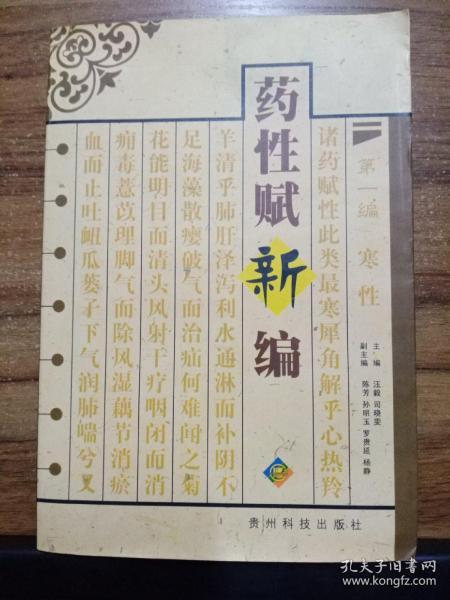 药性赋新编
第一编 寒性
诸药赋性此类最寒犀角解乎心热羚
羊清乎肺肝泽泻利水通淋而补阴不
足海藻散瘿破气而治疝何难闻之菊
花能明目而清头风射干疗咽闭而消
痈毒薏苡理脚气而除风湿藕节消瘀
血而止吐衄瓜蒌子下气润肺喘兮又
主编 汪毅 司晓雯
副主编 陈芳 孙明玉 罗贵 杨静
贵州科技出版社
孔夫子旧书网
www.kongfz.com